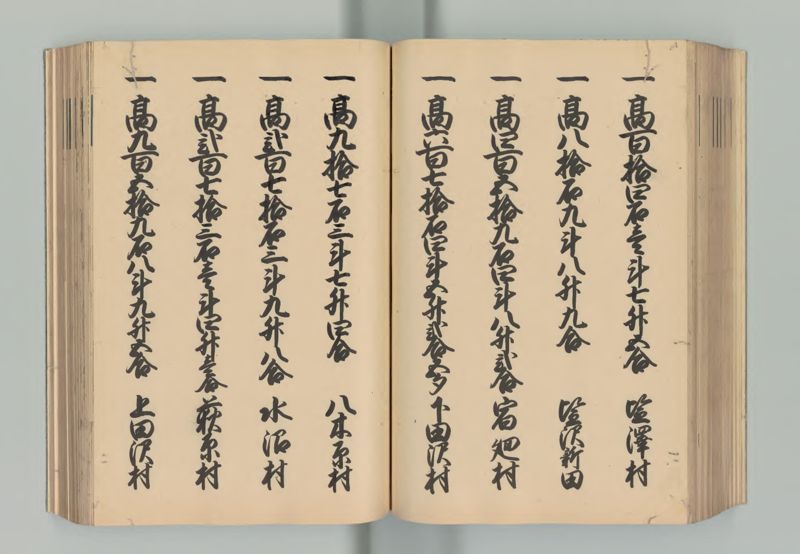 一 高百拾四石壱斗七升五合 塩澤村
一 高八拾石九斗八升九合 塩沢新田
一 高四百五拾九石四斗八升弐合 宿廻村
一 高六百七拾石四斗五升弐合五夕 下田沢村
一 高九拾七石三斗七升四合 八木原村
一 高弐百七拾石三斗九升八合 水沼村
一 高弐百七拾三石壱斗四升三合 萩原村
一 高九百五拾九石八斗九升五合 上田沢村